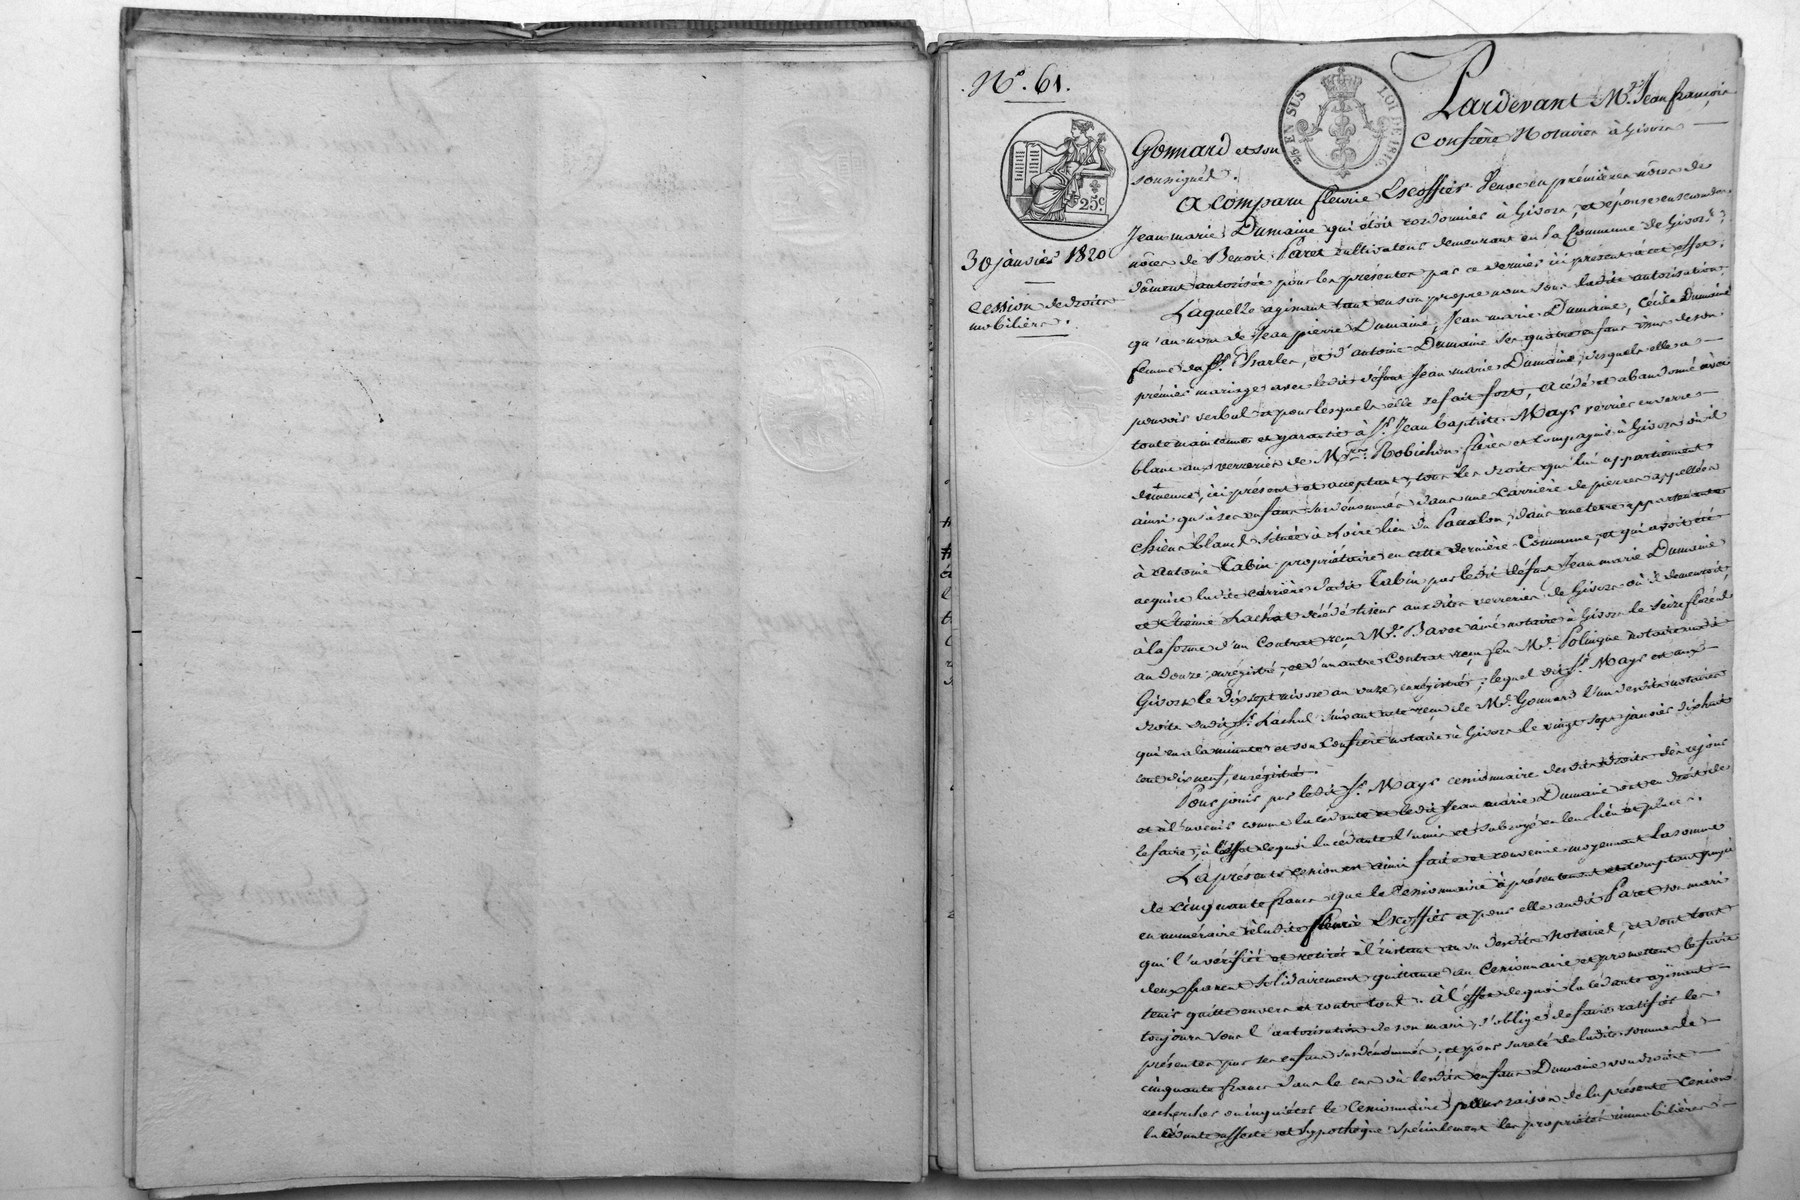 N.º 61.
Pardevant M.es Jean françois
25 EN SUS LOI DE 1816.
Gonnard et son Confrère Notaires à Givors
soussignés.
25.c
A comparu fleurie Escoffier veuve en premières nôces de
Jean marie Dumaine qui étoit cordonnier à Givors, et épouse en secondes
30 janvier 1820
nôces de Benoit Paret cultivateur demeurant en la Commune de Givors,
dûment autorisée pour les présentes par ce dernier ici présent à cet effet.
Cession de droits
mobiliers.
Laquelle agissant tant en son propre nom sous ladite autorisation,
qu'au nom de Jean pierre Dumaine, Jean marie Dumaine, Cécile Dumaine
femme du Sr. Charles, et d'antoine Dumaine ses quatre enfans issus de son
premier mariage avec ledit défunt Jean marie Dumaine, desquels elle a
pouvoir verbal et pour lesquels elle se fait fort, a cédé et abandonné avec
toute maintenue et garantie à Sr. Jean baptiste Mays verrier en verre
blanc aux verreries de M.rs Robichon frères et Compagnie à Givors où il
demeure, ici présent et acceptant, tous les droits qui lui appartiennent
ainsi qu'à ses enfans susdénommés dans une carrière de pierres appellée
chien blanc située à Loire lieu du Pavalon, dans une terre appartenante
à Antoine Tabin propriétaire en cette dernière Commune, et qui avoit été
acquise ladite carrière dudit Tabin par ledit défunt Jean marie Dumaine
et Etienne Lachat décédé tiseur auxdites verreries de Givors où il demeuroit,
à la forme d'un Contrat reçu M.e Bavoz ainé notaire à Givors le seize floréal
an douze, enrégistré, et d'un autre Contrat reçu feu M.e Polingue notaire audit
Givors le dix sept nivose an onze, enrégistré; lequel dit Sr. Mays est aux
droits dudit Sr. Lachat suivant acte reçu de M.e Gonnard l'un desdits notaires
qui en a la minute et son Confrère notaire à Givors le vingt sept janvier dix huit
cent dix neuf, enrégistré.
Pour jouir par ledit Sr. Mays cessionnaire desdits droits dès ce jour
et à l'avenir comme la cédante et ledit Jean marie Dumaine ont eu droit de
le faire, à l'effet de quoi la cédante l'a mis et subrogé en leur lieu et place.
La présente cession est ainsi faite et convenue moyennant la somme
de cinquante francs que le Cessionnaire a présentement et comptant payé
en numéraire à ladite fleurie Escoffier et pour elle audit Paret son mari
qui l'a vérifiée et retirée à l'instant au vu desdits Notaires, et dont tous
deux passent solidairement quittance au Cessionnaire et promettent le faire
tenir quitte envers et contre tous. à l'effet de quoi la cédante agissant
toujours sous l'autorisation de son mari, s'oblige de faire ratifier les
présentes par ses enfans susdénommés, et pour sureté de ladite somme de
cinquante francs dans le cas où lesdits enfans Dumaine voudroient
rechercher ou inquiéter le Cessionnaire pour raison de la présente Cession
la cédante affecte et hypothèque spécialement les propriétés immobilières